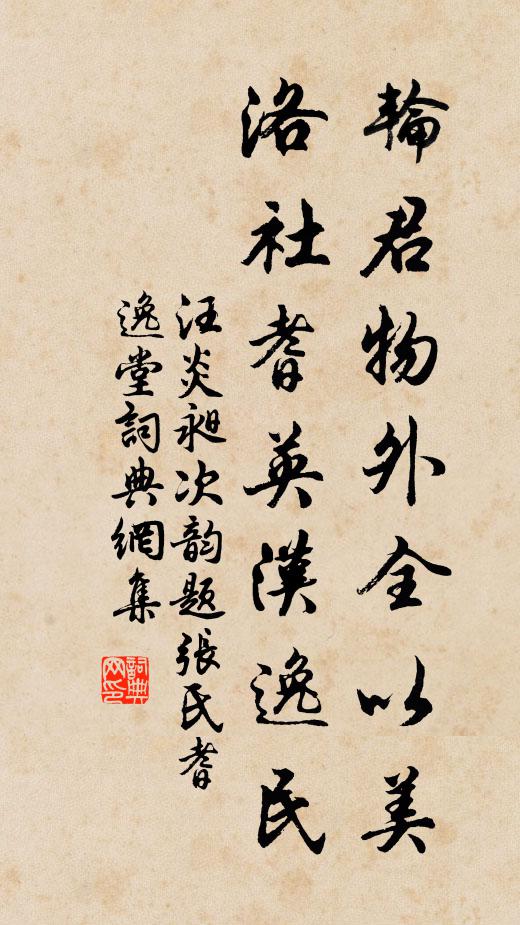 輪君物外全以美
洛社耆英漢逸民
汪炎昶次韵題張氏耆
逸堂詞典網集
詞典網印